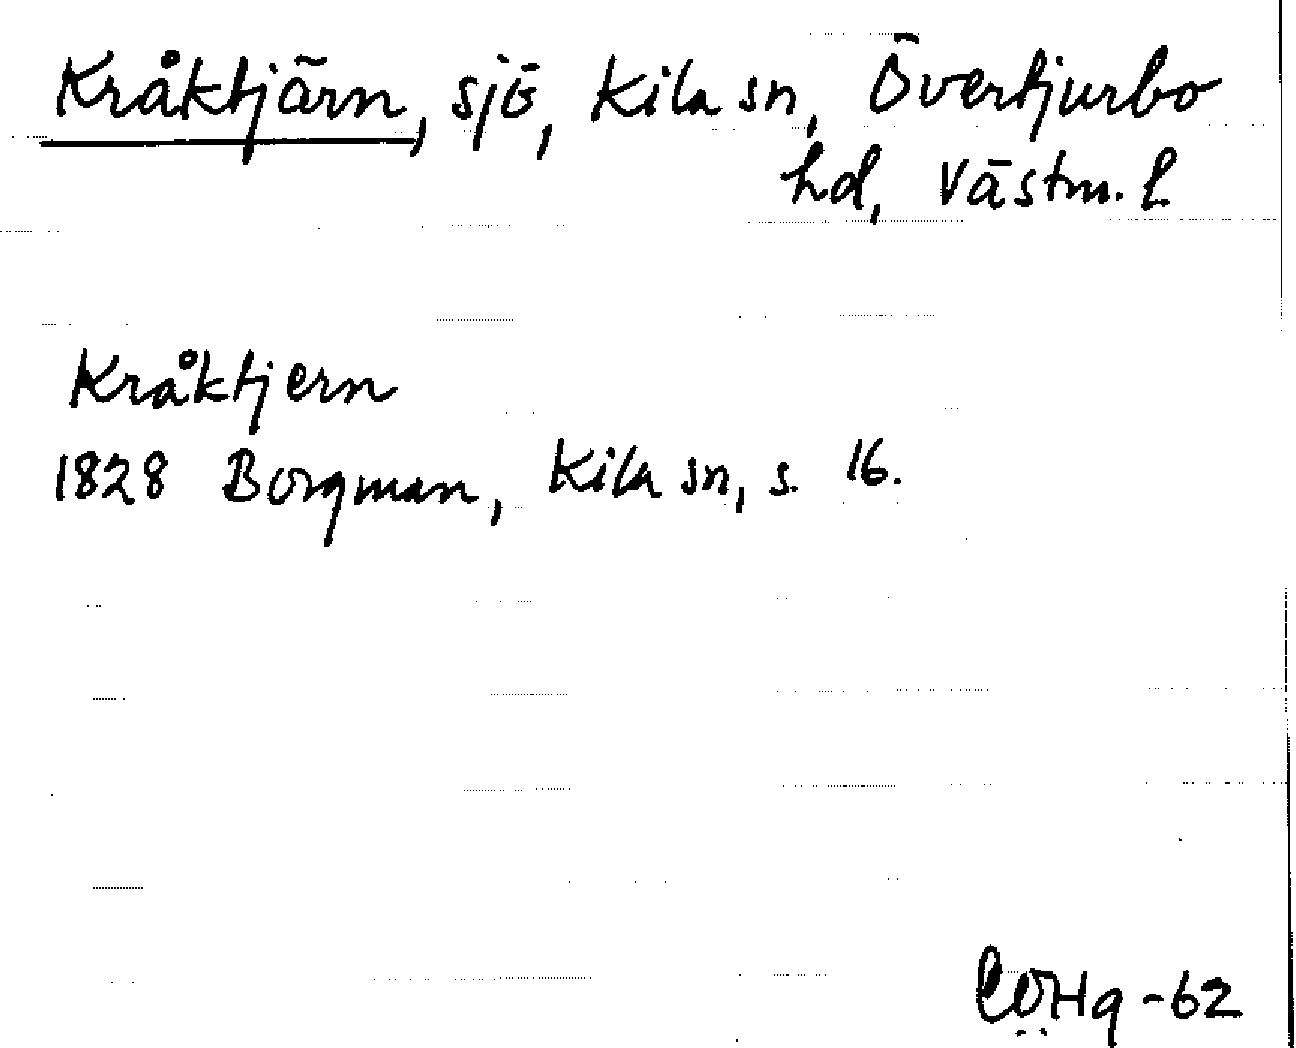 Kråktjärn, sjö, Kila sn, Övertjurbo
hd, Västm. l
Kråktjern
1828 Borgman, Kila sn, s. 16.
COHq -62